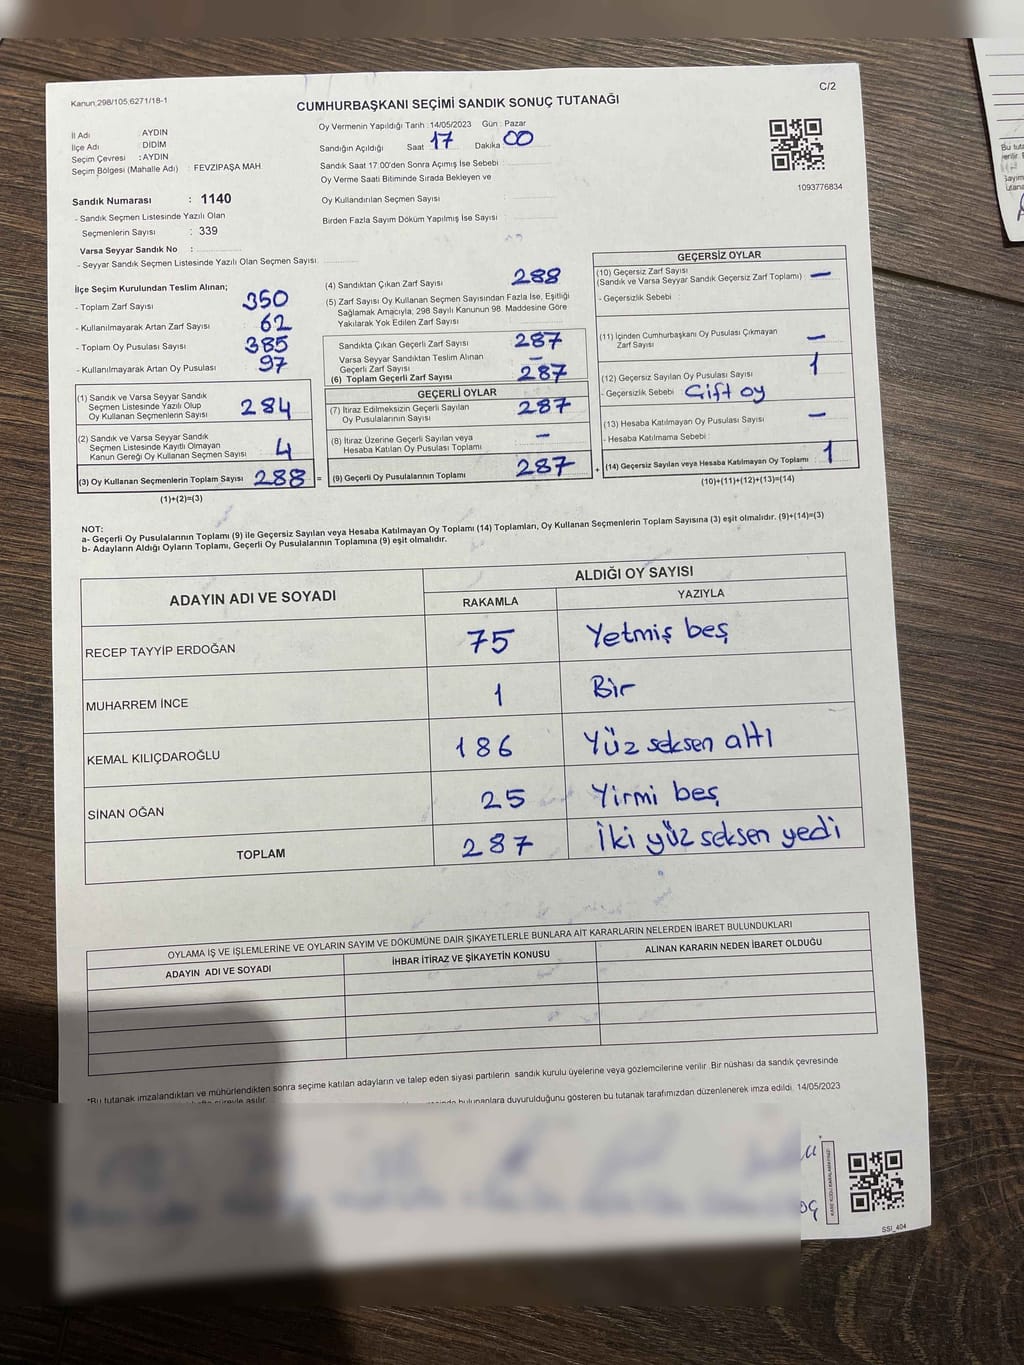 Kanun,298/105,6271/18-1
C/2
CUMHURBAŞKANI SEÇİMİ SANDIK SONUÇ TUTANAĞI
İl Adı : AYDIN
İlçe Adı : DİDİM
Seçim Çevresi : AYDIN
Seçim Bölgesi (Mahalle Adı) : FEVZİPAŞA MAH.
Oy Vermenin Yapıldığı Tarih :14/05/2023 Gün : Pazar
Sandığın Açıldığı Saat 17 Dakika 00
Sandık Saat 17:00'den Sonra Açımış İse Sebebi :
Oy Verme Saati Bitiminde Sırada Bekleyen ve
Oy Kullandırılan Seçmen Sayısı :
Birden Fazla Sayım Döküm Yapılmış İse Sayısı :
1093776834
Sandık Numarası : 1140
- Sandık Seçmen Listesinde Yazılı Olan
Seçmenlerin Sayısı : 339
Varsa Seyyar Sandık No :
- Seyyar Sandık Seçmen Listesinde Yazılı Olan Seçmen Sayısı:
İlçe Seçim Kurulundan Teslim Alınan;
- Toplam Zarf Sayısı : 350
- Kullanılmayarak Artan Zarf Sayısı : 62
- Toplam Oy Pusulası Sayısı : 385
- Kullanılmayarak Artan Oy Pusulası : 97
(1) Sandık ve Varsa Seyyar Sandık
Seçmen Listesinde Yazılı Olup
Oy Kullanan Seçmenlerin Sayısı : 284
(2) Sandık ve Varsa Seyyar Sandık
Seçmen Listesinde Kayıtlı Olmayan
Kanun Gereği Oy Kullanan Seçmen Sayısı : 4
(3) Oy Kullanan Seçmenlerin Toplam Sayısı : 288 =
(1)+(2)=(3)
(4) Sandıktan Çıkan Zarf Sayısı : 288
(5) Zarf Sayısı Oy Kullanan Seçmen Sayısından Fazla İse, Eşitliği
Sağlamak Amacıyla; 298 Sayılı Kanunun 98. Maddesine Göre
Yakılarak Yok Edilen Zarf Sayısı :
Sandıkta Çıkan Geçerli Zarf Sayısı : 287
Varsa Seyyar Sandıktan Teslim Alınan
Geçerli Zarf Sayısı : –
(6) Toplam Geçerli Zarf Sayısı : 287
GEÇERLİ OYLAR
(7) İtiraz Edilmeksizin Geçerli Sayılan
Oy Pusulalarının Sayısı : 287
(8) İtiraz Üzerine Geçerli Sayılan veya
Hesaba Katılan Oy Pusulası Toplamı : –
(9) Geçerli Oy Pusulalarının Toplamı : 287 +
GEÇERSİZ OYLAR
(10) Geçersiz Zarf Sayısı
(Sandık ve Varsa Seyyar Sandık Geçersiz Zarf Toplamı) : –
- Geçersizlik Sebebi :
(11) İçinden Cumhurbaşkanı Oy Pusulası Çıkmayan
Zarf Sayısı : –
(12) Geçersiz Sayılan Oy Pusulası Sayısı : 1
- Geçersizlik Sebebi : Çift oy
(13) Hesaba Katılmayan Oy Pusulası Sayısı : –
- Hesaba Katılmama Sebebi :
(14) Geçersiz Sayılan veya Hesaba Katılmayan Oy Toplamı : 1
(10)+(11)+(12)+(13)=(14)
NOT:
a- Geçerli Oy Pusulalarının Toplamı (9) ile Geçersiz Sayılan veya Hesaba Katılmayan Oy Toplamı (14) Toplamları, Oy Kullanan Seçmenlerin Toplam Sayısına (3) eşit olmalıdır. (9)+(14)=(3)
b- Adayların Aldığı Oyların Toplamı, Geçerli Oy Pusulalarının Toplamına (9) eşit olmalıdır.
ADAYIN ADI VE SOYADI
ALDIĞI OY SAYISI
RAKAMLA YAZIYLA
RECEP TAYYİP ERDOĞAN 75 Yetmiş beş
MUHARREM İNCE 1 Bir
KEMAL KILIÇDAROĞLU 186 Yüz seksen altı
SİNAN OĞAN 25 Yirmi beş
TOPLAM 287 İki yüz seksen yedi
OYLAMA İŞ VE İŞLEMLERİNE VE OYLARIN SAYIM VE DÖKÜMÜNE DAİR ŞİKAYETLERLE BUNLARA AİT KARARLARIN NELERDEN İBARET BULUNDUKLARI
ADAYIN ADI VE SOYADI İHBAR İTİRAZ VE ŞİKAYETİN KONUSU ALINAN KARARIN NEDEN İBARET OLDUĞU
*Bu tutanak imzalandıktan ve mühürlendikten sonra seçime katılan adayların ve talep eden siyasi partilerin sandık kurulu üyelerine veya gözlemcilerine verilir. Bir nüshası da sandık çevresinde
bulunanlara duyurulduğunu gösteren bu tutanak tarafımızdan düzenlenerek imza edildi. 14/05/2023
KARE KODU KARALAMAYINIZ!
SSI_404